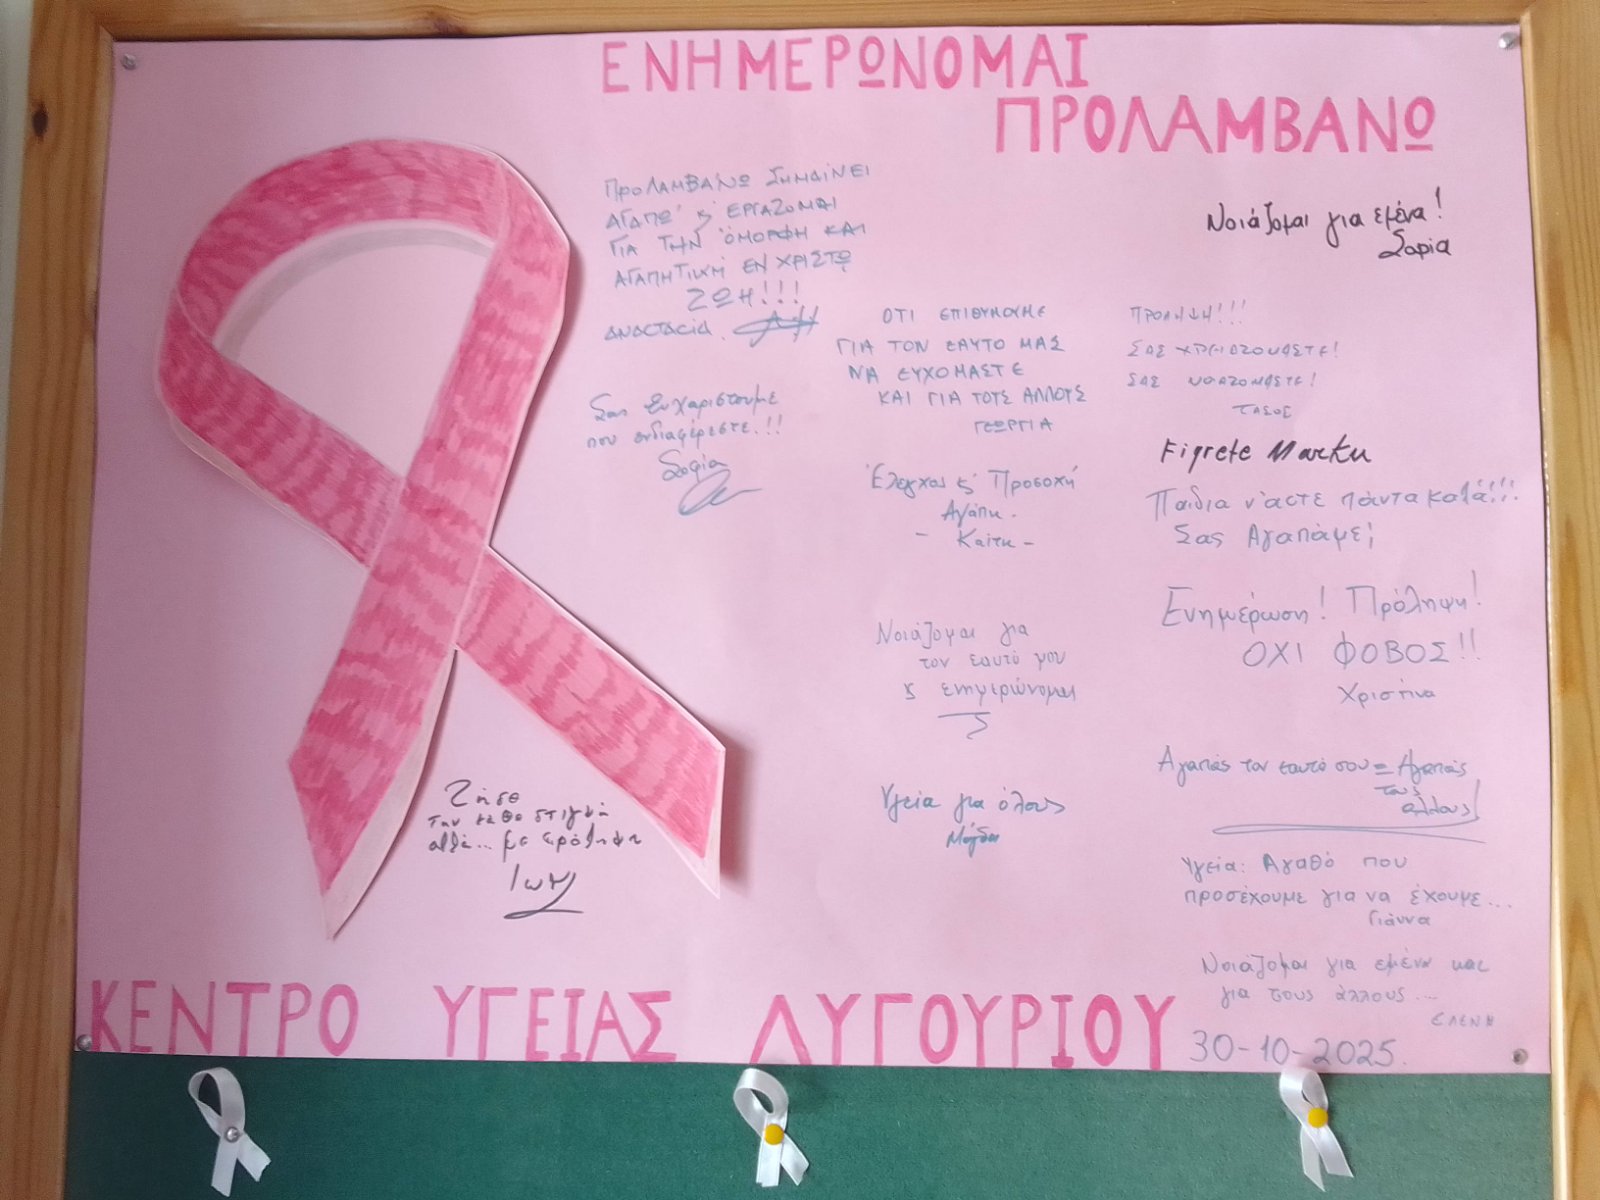 ΕΝΗΜΕΡΩΝΟΜΑΙ
ΠΡΟΛΑΜΒΑΝΩ
ΠΡΟΛΑΜΒΑΝΩ ΣΗΜΑΙΝΕΙ
ΑΓΑΠΩ ϗ ΕΡΓΑΖΟΜΑΙ
ΓΙΑ ΤΗΝ ΟΜΟΡΦΗ ΚΑΙ
ΑΓΑΠΗΤΙΚΗ ΕΝ ΧΡΙΣΤΩ
ΖΩΗ!!!
ΑΝΑCΤΑCΙΑ.
Νοιάζομαι για εμένα!
Σας ευχαριστουμε
που ενδιαφέρεστε.!!
Σοφία
ΟΤΙ ΕΠΙΘΥΜΟΥΜΕ
ΓΙΑ ΤΟΝ ΕΑΥΤΟ ΜΑΣ
ΝΑ ΕΥΧΟΜΑΣΤΕ
ΚΑΙ ΓΙΑ ΤΟΥΣ ΑΛΛΟΥΣ
ΓΕΩΡΓΙΑ
ΠΡΟΛΗΨΗ!!!
ΣΑΣ ΧΡΕΙΑΖΟΜΑΣΤΕ!
ΣΑΣ ΝΟΙΑΖΟΜΑΣΤΕ!
ΤΑΣΟΣ
Έλεγχος ϗ Προσοχή
Αγάπη.
- Καίτη -
Fiqrete Marku
Παιδια ν'αστε πάντα καλά!!!
Σας Αγαπάμε;
Νοιάζομαι για
τον εαυτό μου
ϗ ενημερώνομαι
Ενημέρωση! Πρόληψη!
ΟΧΙ ΦΟΒΟΣ!!
Χριστίνα
Υγεία για όλους
Μάγδα
Αγαπάς τον εαυτό σου = Αγαπάς
τους
άλλους!
Ζήσε
την κάθε στιγμή
αλλά... με πρόληψη
Υγεία: Αγαθό που
προσέχουμε για να έχουμε...
Γιάννα
Νοιάζομαι για εμένα και
για τους άλλους...
ΕΛΕΝΗ
ΚΕΝΤΡΟ ΥΓΕΙΑΣ ΛΥΓΟΥΡΙΟΥ
30-10-2025.